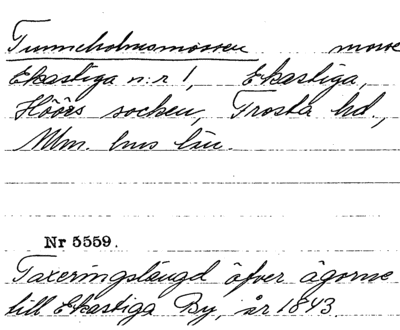 Tunneholmsmossen mosse
Ekastiga n:r 1, Ekastiga,
Höörs socken, Frosta hd.,
Mlm. hus län.
Nr 5559.
Taxeringslängd öfver ägorne
till Ekastiga By, år 1843.